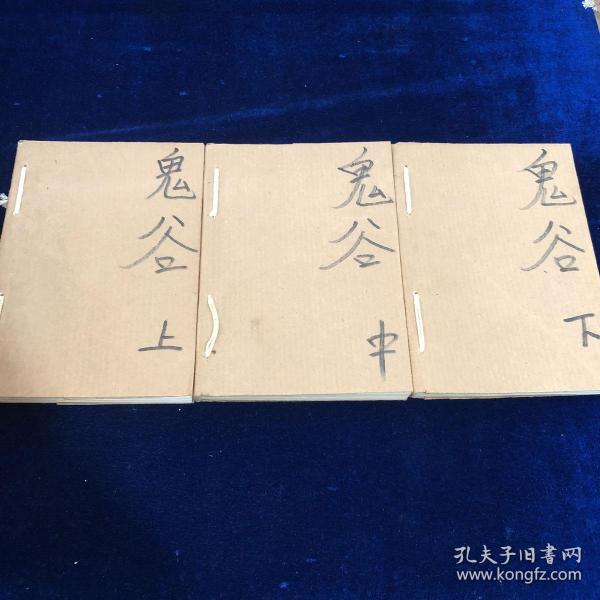 鬼谷
上
鬼谷
中
鬼谷
下
孔夫子旧書网
www.kongfz.com